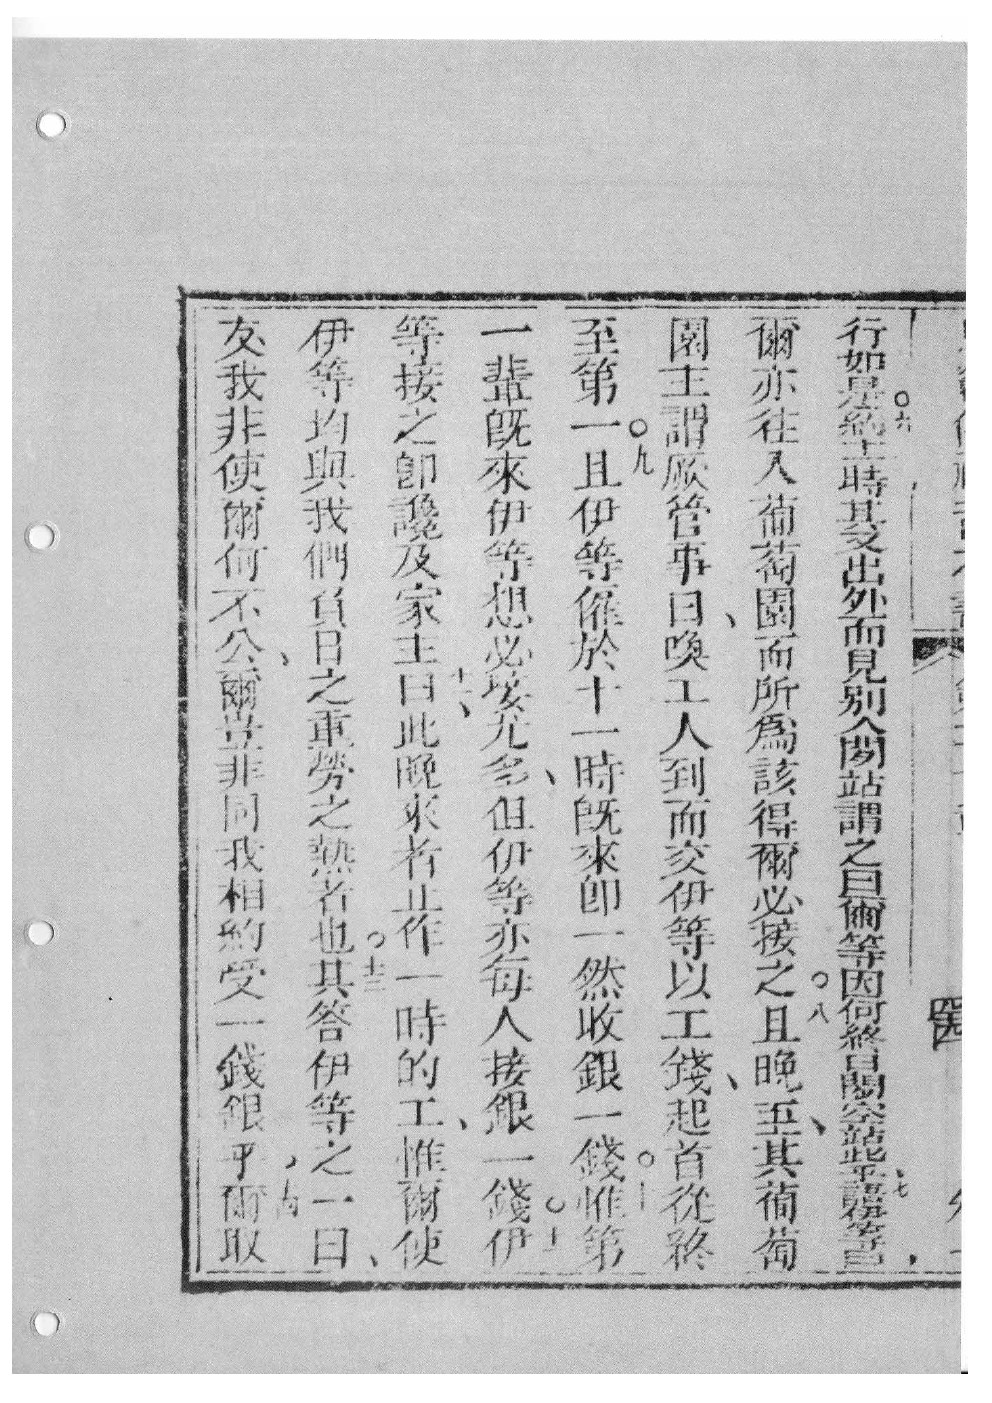 行如是約十一時其又出外而見別人閒站謂之曰爾等因何終日閒空站此乎謂輝等曰
爾亦往入葡萄園而所為該得爾必接之且晚至其葡萄
園主謂厥管事曰喚工人到而交伊等以工錢起首從終
至第一且伊等僱於十一時既來即一然收銀一錢惟第
一輩既來伊等想必接尤多但伊等亦每人接銀一錢伊
等接之即讒及家主曰此晚來者止作一時的工惟爾使
伊等均與我們負日之重勞之熱者也其答伊等之一曰
友我非使爾何不公爾豈非同我相約受一錢銀乎爾取
六
七
八
九
十一
十二
十三